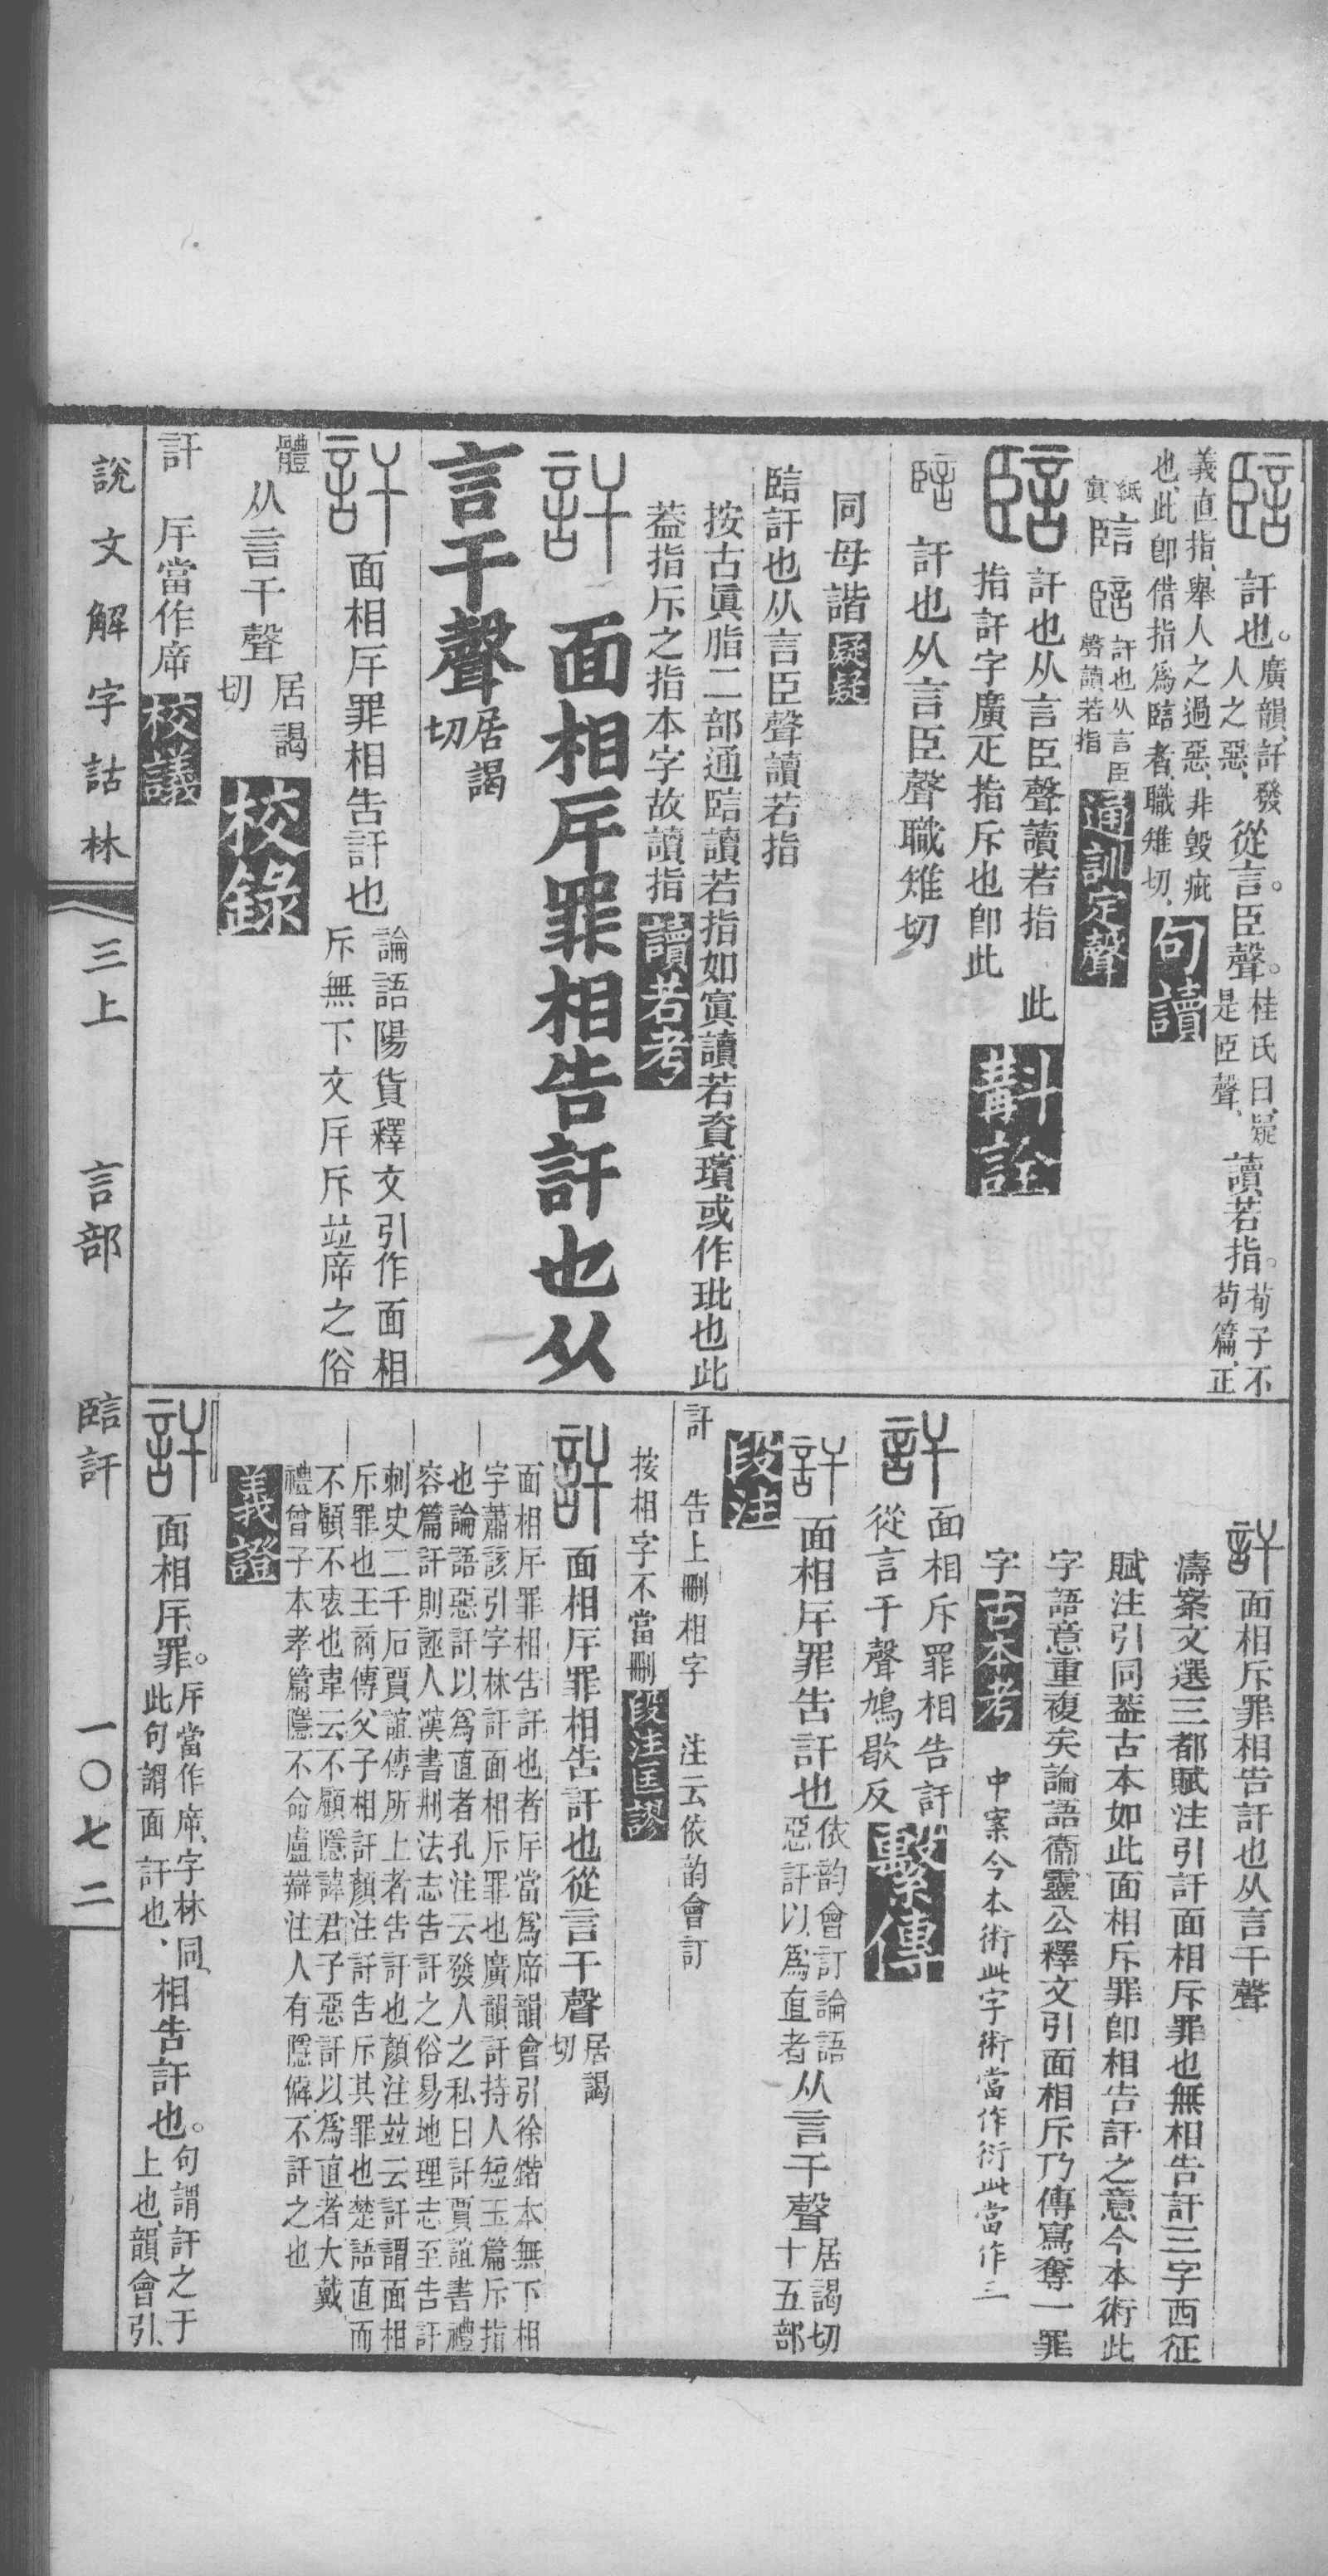 䛠 訐也。廣韻、訐發人之惡、從言。臣聲。桂氏曰、疑是𦣞聲、讀若指。荀子不苟篇、正
義直指、舉人之過惡、非毀疵
也、此卽借指爲䛠者、職雉切、句讀
紙寘䛠 䛠 訐也从言臣聲讀若指 通訓定聲
䛠 訐也从言臣聲讀若指 此
指訐字廣疋指斥也卽此 斠詮
䛠 訐也从言臣聲職雉切
同母諧 疑疑
䛠訐也从言臣聲讀若指
按古眞脂二部通䛠讀若指如寘讀若資璸或作玭也此
葢指斥之指本字故讀指 讀若考
訐 面相㡿罪相告訐也从
言干聲居謁切
訐 面相㡿罪相告訐也 論語陽貨釋文引作面相斥無下文㡿斥竝㡿之俗
體 从言干聲 居謁切 校錄
訐 㡿當作㡿 校議
訐 面相斥罪相告訐也从言干聲
濤案文選三都賦注引訐面相斥罪也無相告訐三字西征
賦注引同葢古本如此面相斥罪卽相告訐之意今本術此
字語意重複矣論語衞靈公釋文引面相斥乃傳寫奪一罪
字 古本考 中案今本術此字術當作衍此當作三
訐 面相斥罪相告訐
從言干聲鳩歇反 繫傳
訐 面相㡿罪告訐也 依韵會訂論語惡訐以爲直者 从言干聲 居謁切十五部
段注
訐 告上刪相字 注云依韵會訂
按相字不當刪 段注匡謬
訐 面相㡿罪相告訐也從言干聲 居謁切
面相㡿罪相告訐也者㡿當爲㡿韻會引徐鍇本無下相
字蕭該引字林訐面相斥罪也廣韻訐持人短玉篇斥指
也論語惡訐以爲直者孔注云發人之私曰訐賈誼書禮
容篇訐則誣人漢書刑法志告訐之俗易地理志至告訐
刺史二千石賈誼傳所上者告訐也顏注竝云訐謂面相
斥罪也王商傳父子相訐顏注訐告斥其罪也楚語直而
不顧不衷也韋云不顧隱諱君子惡訐以爲直者大戴
禮曾子本孝篇隱不命盧辯注人有隱僻不訐之也
義證
訐 面相㡿罪。㡿當作㡿、字林同、此句謂面訐也、相告訐也。句謂訐之于上也、韻會引、
說文解字詁林 三上 言部 䛠訐 一〇七二